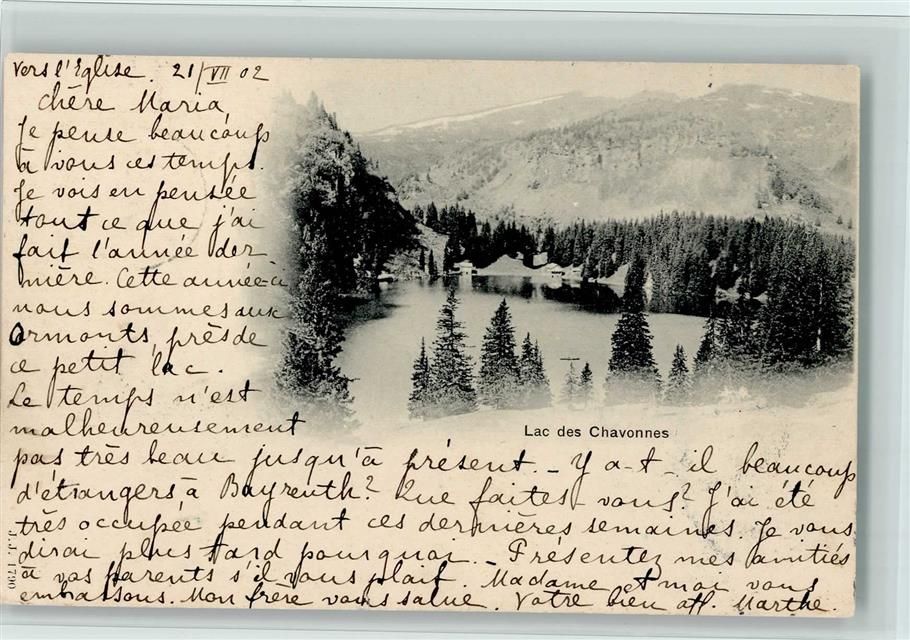 Vers l'Eglise. 21/VII 02
Chère Maria
Je pense beaucoup
à vous ces temps.
Je vois en pensée
tout ce que j'ai
fait l'année der
nière. Cette année-ci
nous sommes aux
Ormonts, près de
ce petit lac.
Le temps n'est
malheureusement
Lac des Chavonnes
pas très beau jusqu'à présent. - Y a-t-il beaucoup
d'étrangers à Bayreuth? Que faites-vous? J'ai été
très occupée pendant ces dernières semaines. Je vous
dirai plus tard pourquoi. - Présentez mes amitiés
à vos parents s'il vous plaît. Madame et moi vous
embrassons. Mon frère vous salue. Votre bien aff. Marthe.
J.J. 1790